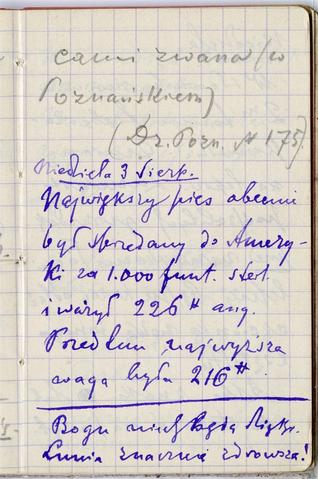 cami zwana (w
Poznańskiem)
(Dz. Pozn. № 175)
Niedziela 3 Sierp.
Największy pies obecnie
był sprzedany do Amery-
ki za 1.000 funt. sterl
i ważył 226 ℔ ang.
Przedtem najwyższa
waga była 216 ℔.
Bogu niech będą dzięki.
Lunia znacznie zdrowsza!